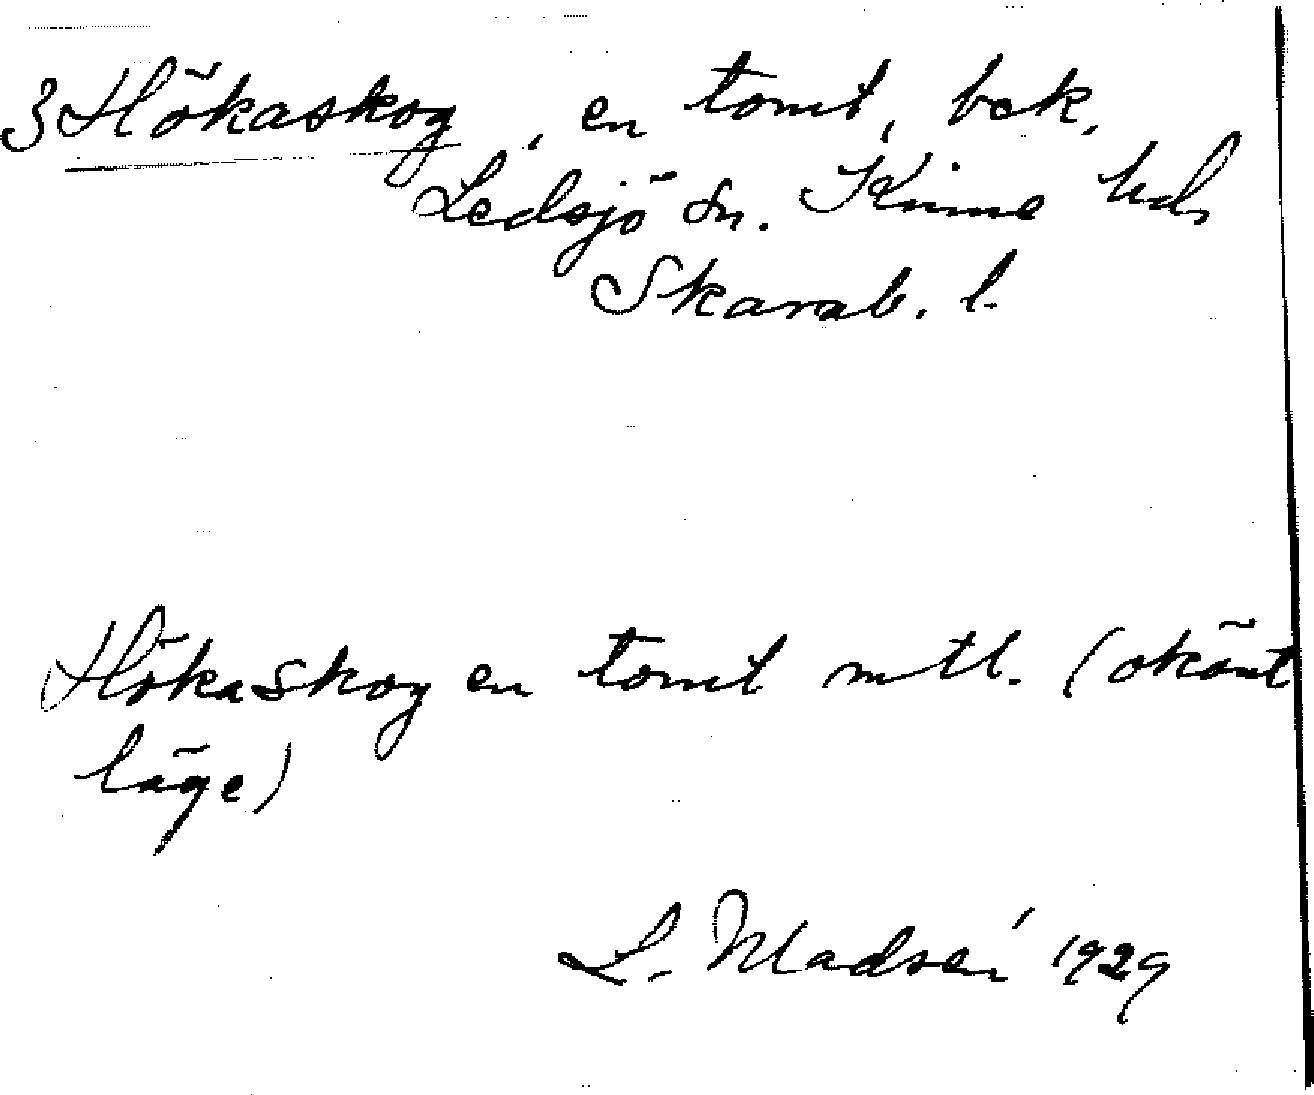 3 Hökaskog, en tomt, bek.
Ledsjö sn. Kinne hd.
Skarab. l.
Hökaskog en tomt mtl. (okänt
läge)
L. Madsén 1929